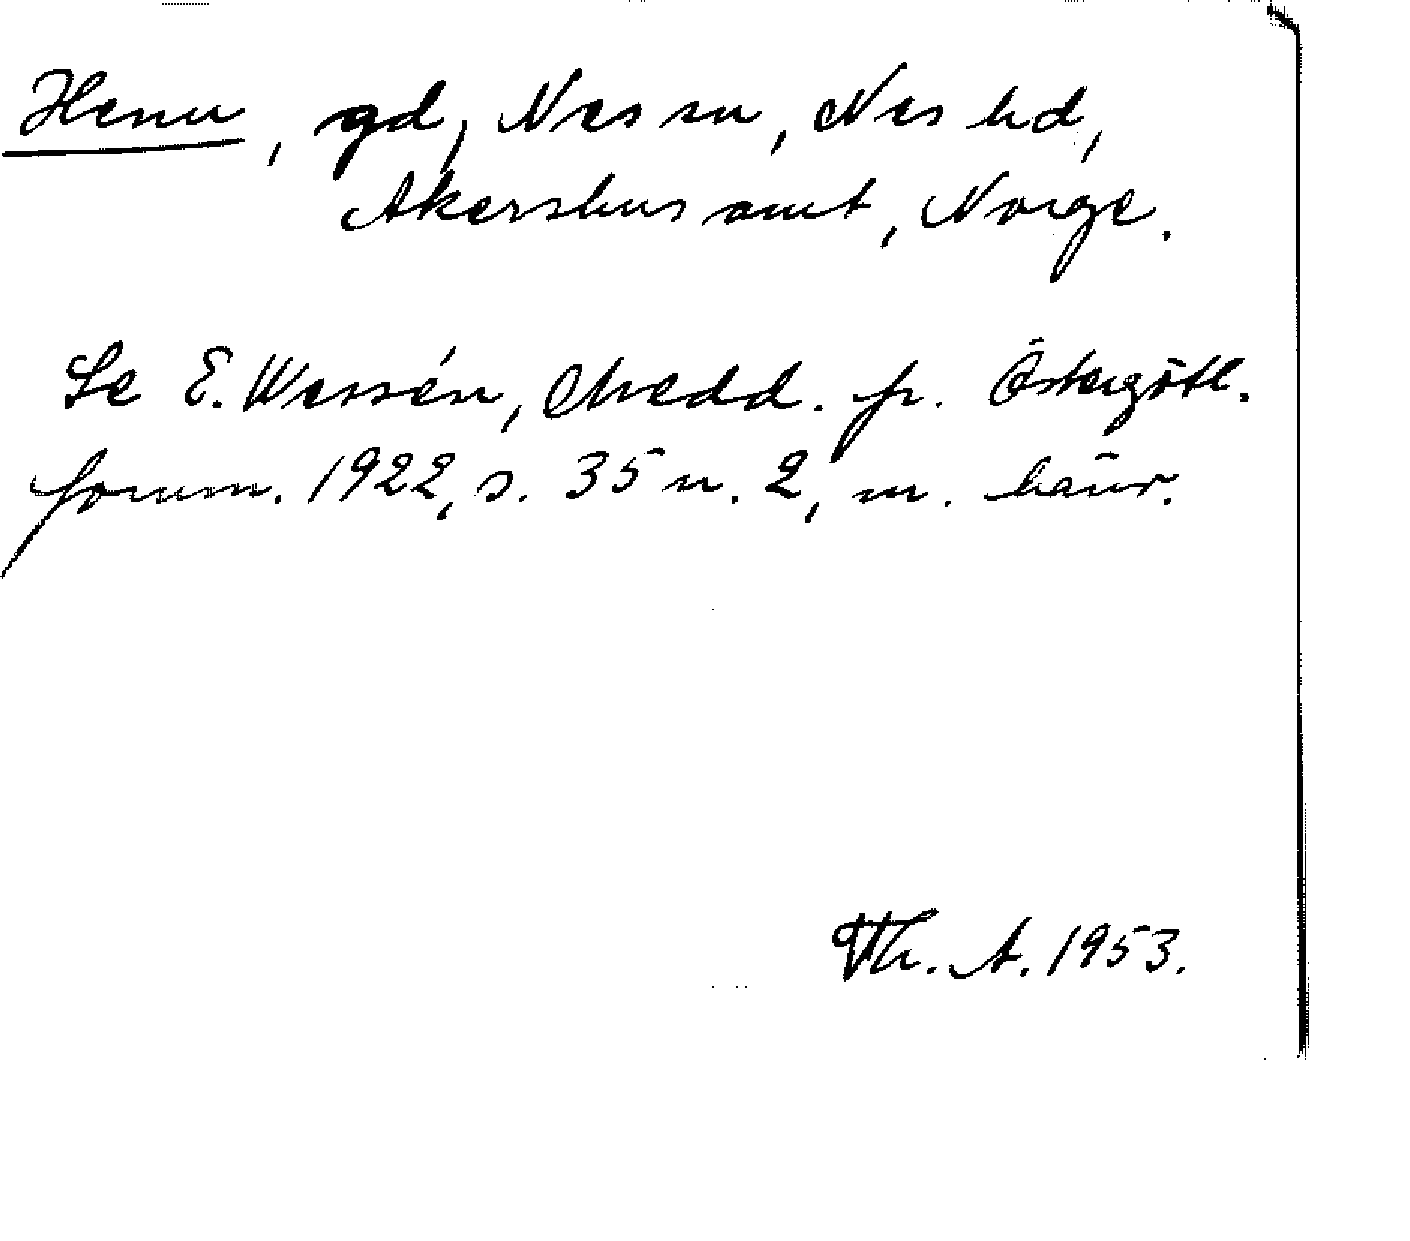 Henu, gd, Nes sn, Nes hd,
Akershus amt, Norge.
Se E. Wessén, Medd. fr. Östergötl.
fornm. 1922, s. 35 n. 2, m. hänv.
Th. A. 1953.